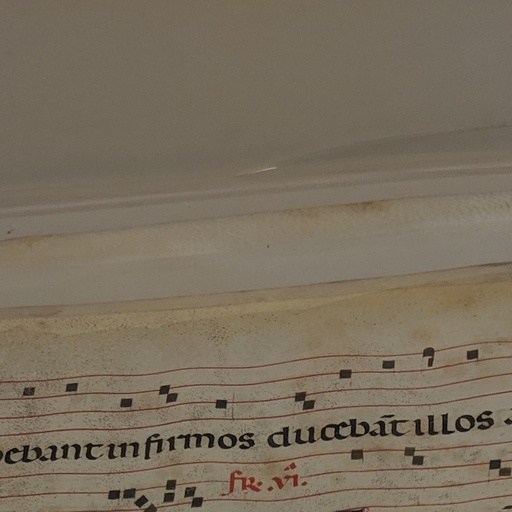 ebant infirmos ducebāt illos
fr. vi.